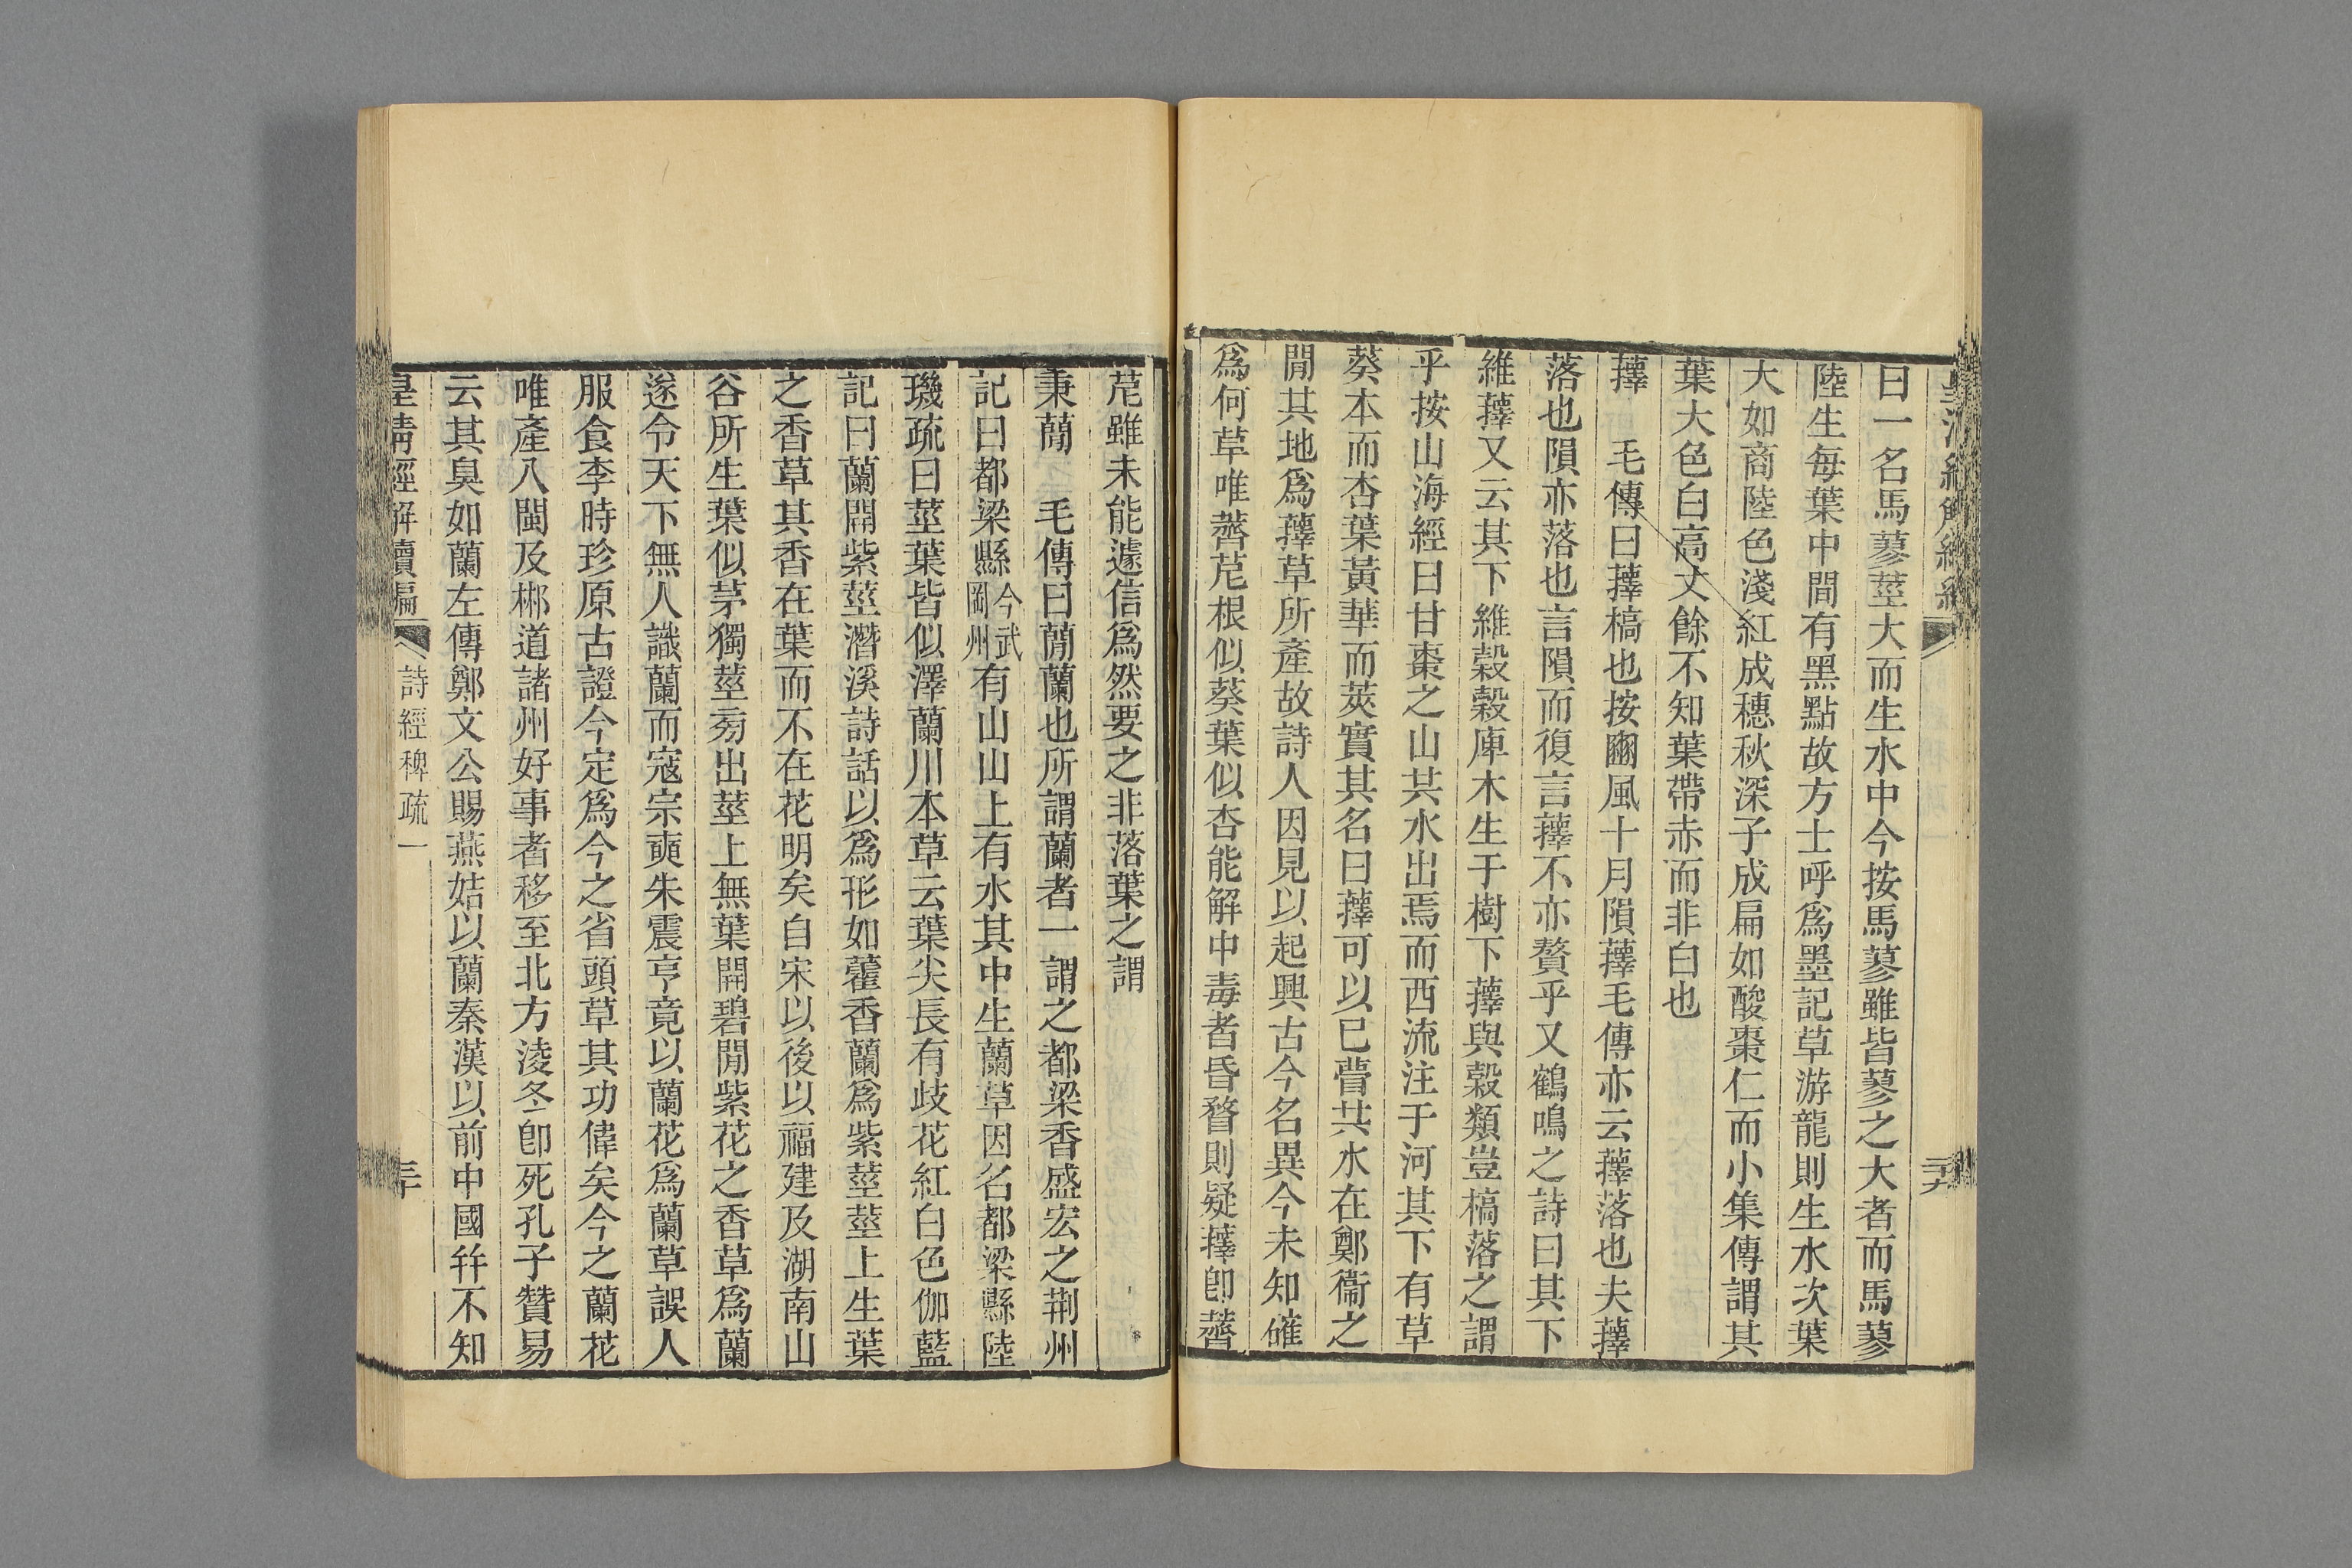 曰一名馬蓼莖大而生水中今按馬蓼雖皆蓼之大者而馬蓼
陸生每葉中間有黑點故方士呼爲墨記草游龍則生水次葉
大如商陸色淺紅成穗秋深子成扁如酸棗仁而小集傳謂其
葉大色白高丈餘不知葉帶赤而非白也
蘀　毛傳曰蘀槁也按豳風十月隕蘀毛傳亦云蘀落也夫蘀
落也隕亦落也言隕而復言蘀不亦贅乎又鶴鳴之詩曰其下
維蘀又云其下維榖榖庳木生于樹下蘀與榖類豈槁落之謂
乎按山海經曰甘棗之山共水出焉而西流注于河其下有草
葵本而杏葉黃華而莢實其名曰蘀可以已瞢共水在鄭衞之
閒其地爲蘀草所產故詩人因見以起興古今名異今未知確
爲何草唯薺苨根似葵葉似杏能解中毒者昏瞀則疑蘀卽薺
苨雖未能遽信爲然要之非落葉之謂
秉蕑　毛傳曰蕑蘭也所謂蘭者一謂之都梁香盛宏之荆州
記曰都梁縣今武岡州有山山上有水其中生蘭草因名都梁縣陸
璣疏曰莖葉皆似澤蘭川本草云葉尖長有歧花紅白色伽藍
記曰蘭開紫莖濳溪詩話以爲形如藿香蘭爲紫莖莖上生葉
之香草其香在葉而不在花明矣自宋以後以福建及湖南山
谷所生葉似茅獨莖㫄出莖上無葉開碧閒紫花之香草爲蘭
遂令天下無人識蘭而寇宗奭朱震亨竟以蘭花爲蘭草誤人
服食李時珍原古證今定爲今之省頭草其功偉矣今之蘭花
唯產八閩及郴道諸州好事者移至北方淩冬卽死孔子贊易
云其臭如蘭左傳鄭文公賜燕姞以蘭秦漢以前中國幷不知
皇清經解續編
詩經稗疏一
三十